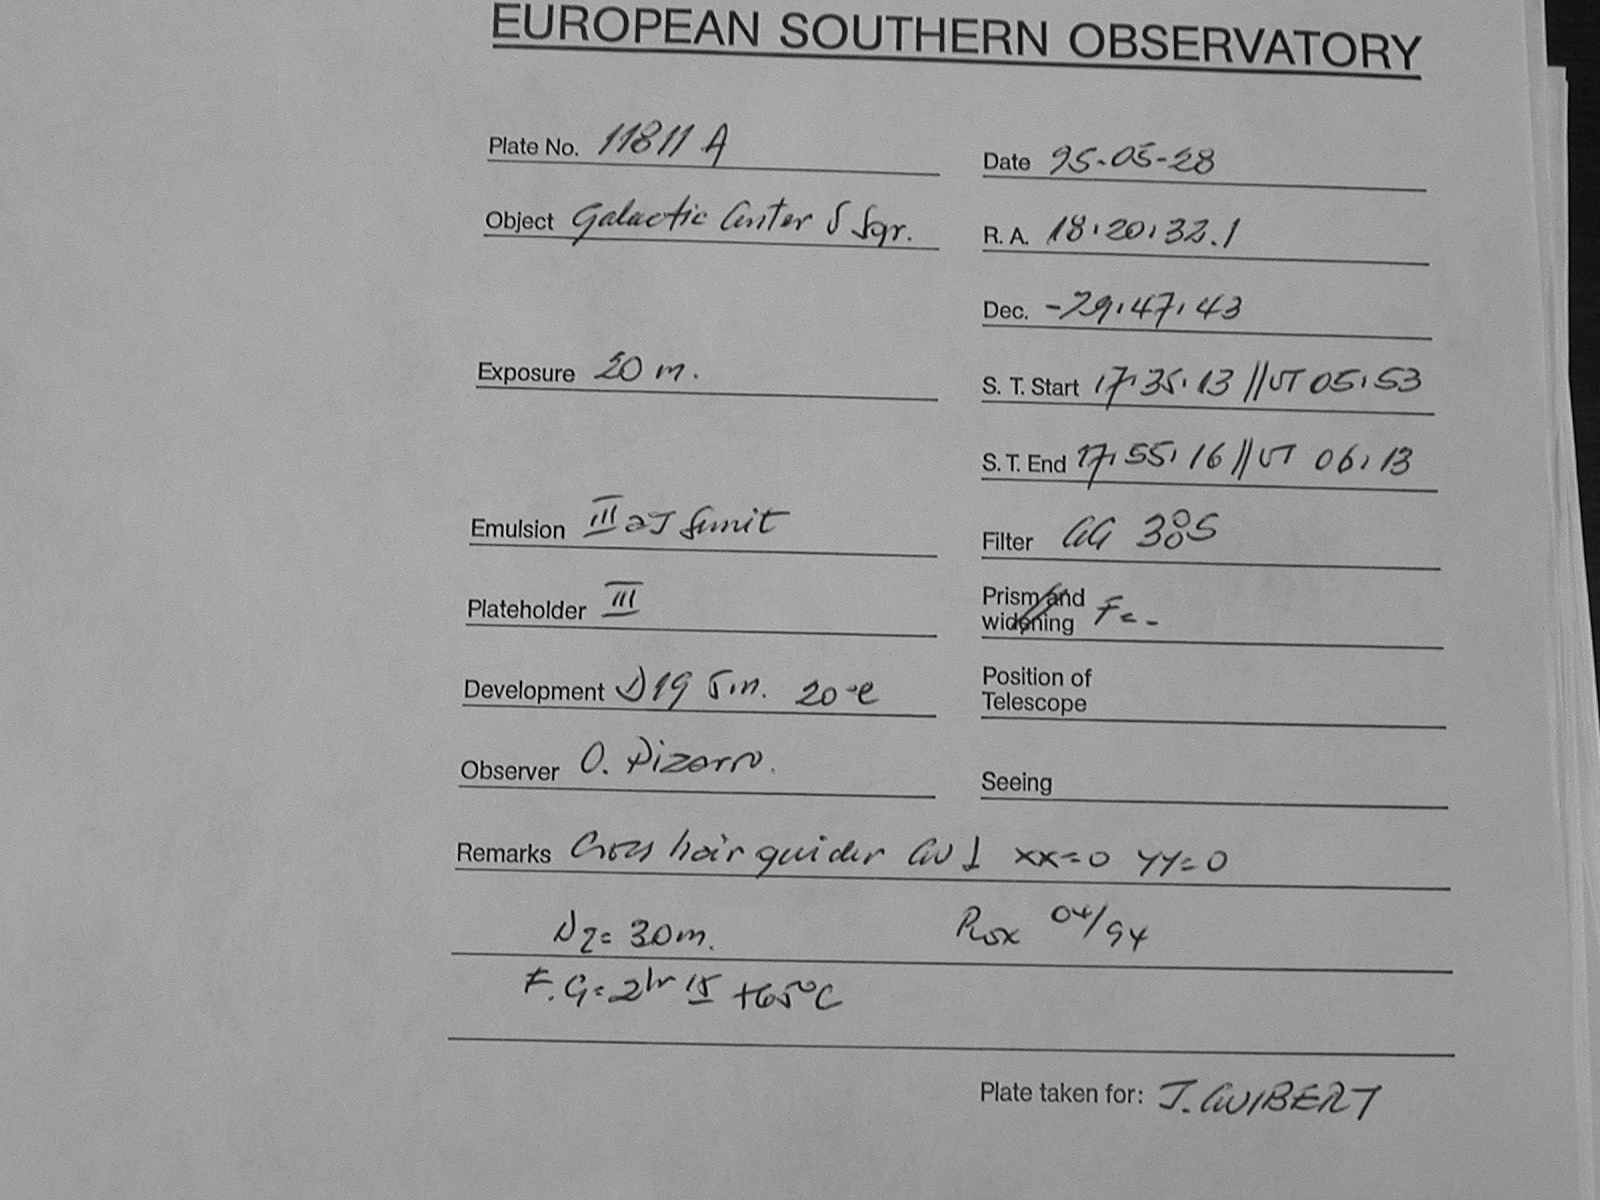 EUROPEAN SOUTHERN OBSERVATORY
Plate No. 11811 A
Date 95-05-28
Object Galactic Center S Sgr.
R. A. 18:20:32.1
Dec. -29:47:43
Exposure 20 m.
S. T. Start 17:35:13 // UT 05:53
S. T. End 17:55:16 // UT 06:13
Emulsion III aJ
Filter GG 385
Plateholder III
Prism and widening
Development D19 5m. 20°C
Position of Telescope
Observer O. Pizarro.
Seeing
Remarks Cross hair guider GU 1 xx=0 yy=0
N2= 30m. 04/94
F.G=2hr 15 +65°C
Plate taken for: J. GUIBERT